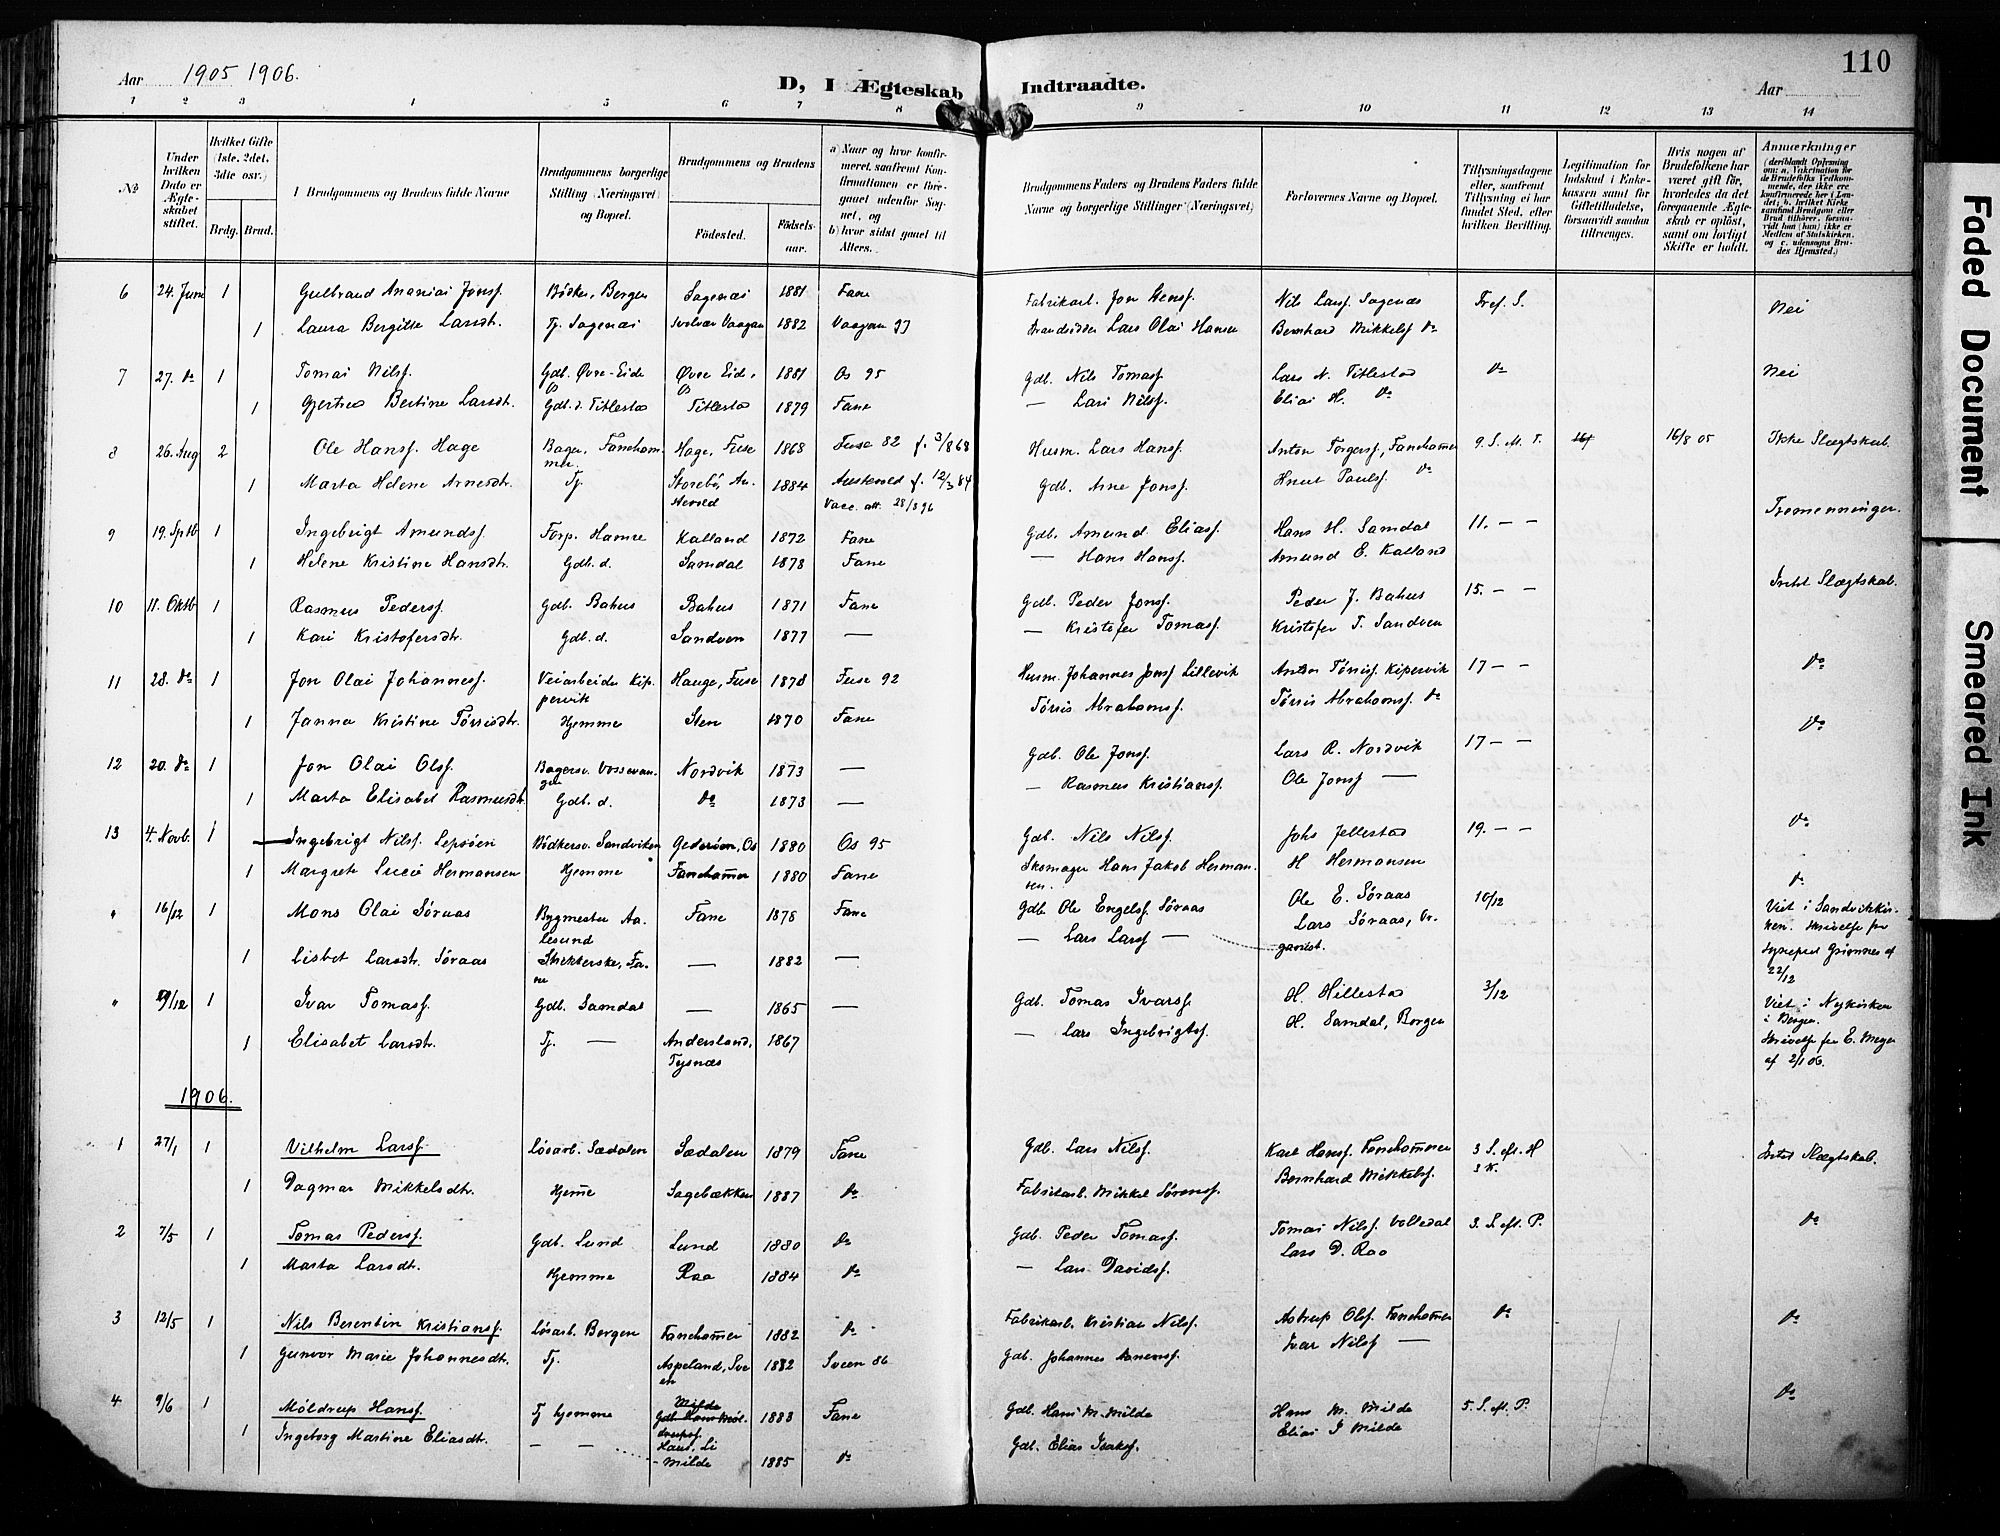 110
Aar 1905 1906.
D, I Ægteskab Indtraadte.
Aar
1 2 3 4 5 6 7 8 9 10 11 12 13 14
No
Under hvilken Dato er Ægteskabet stiftet.
Hvilket Gifte (1ste, 2det, 3die osv.)
Brdg. Brud.
Brudgommens og Brudens fulde Navne
Brudgommens borgerlige Stilling (Næringsvei) og Bopæl.
Brudgommens og Brudens
Fødested. Fødselsaar.
a) Naar og hvor konfirmeret, saafremt Konfirmationen er foregaaet udenfor Sognet, og
b) hvor sidst gaaet til Alters.
Brudgommens Faders og Brudens Faders fulde Navne og borgerlige Stillinger (Næringsvei)
Forlovernes Navne og Bopæl.
Tillysningsdagene eller, saafremt Tillysning ei har fundet Sted, efter hvilken Bevilling.
Legitimation for Indskud i Enkekassen samt for Giftetilladelse, forsaavidt saadan tiltrænges.
Hvis nogen af Brudefolkene har været gift før, hvorledes da det foregaaende Ægteskab er opløst, samt om lovligt Skifte er holdt.
Anmerkninger
6 24. Juni 1 Gulbrand Ananias Jonsf. Bødker, Bergen Sagenæs 1881 Fane Fabrikarb. Jon Stensf. Nils Larsf. Sagenæs Tref. S. Nei
1 Laura Bergitte Larsdt. Tj. Sagenæs Svolvær Vaagan 1882 Vaagan 97 Lars Olai Hansen Bernhard Mikkelsf do
7 27. do 1 Tomas Nilsf. Gdb. Øvre-Eide Os Øvre Eide, Os 1881 Os 95 Gdb. Nils Tomasf. Lars N. Titlestad do Nei
1 Gjertrud Bertine Larsdt. Gdb. d. Titlestad Titlestad 1879 Fane — Lars Nilsf. Elias H. do
8 26. Aug 2 Ole Hansf. Hage Bager, Fanehammer Hage, Fuse 1868 Fuse 82 f. 3/8 68 Husm. Lars Hansf. Anton Torgersf, Fanehamer 9. S. M. T. 16/8 05 Ikke Slægtskab.
1 Marta Helene Arnesdt. Tj. Storebø, Austevold 1884 Austevold f. 12/3 84 Gdb. Arne Jonsf. Knut Paulsf. do
Vacc. att. 28/8 96
Tremenninger.
9 19. Sptb 1 Ingebrigt Amundsf. Forp. Hamre Kalland 1872 Fane Gdb. Amund Eliasf. Hans H. Samdal 11. — —
1 Helene Kristine Hansdt. Gdb. d. Samdal 1878 Fane — Hans Hansf. Amund E. Kalland
Intet Slægtskab.
10 11. Oktb 1 Rasmus Pedersf. Gdb. Bahus Bahus 1871 Fane Gdb. Peder Jonsf. Peder J. Bahus 15. — —
1 Kari Kristofersdt. Gdb. d. Sandven 1877 — — Kristofer Tomasf. Kristofer T. Sandven
11 28. do 1 Jon Olai Johannesf. Veiarbeider Kippervik Hauge, Fuse 1878 Fuse 92 Husm. Johannes Jonsf Lillevik Anton Tørrisf. Kipervik 17 — — do
1 Janna Kristine Tørrisdt. Hjemme Sten 1870 Fane Tørris Abrahamsf. Tørris Abrahamsf. do
do
12 20. do 1 Jon Olai Olsf. Bagersv. Vossevangen Nordvik 1873 — Gdb. Ole Jonsf. Lars R. Nordvik 17 — —
1 Marta Elisabet Rasmusdt. Gdb. d. do 1873 — — Rasmus Kristiansf. Ole Jonsf —
13 4. Novb. 1 Ingebrigt Nilsf. Lepsøen Bødkersv. Sandviken Gederøen, Os 1880 Os 95 Gdb. Nils Nilsf. Johs Jellestad 19. — — do
1 Margrete Lucie Hermansen Hjemme Fanehamer 1880 Fane Skomager Hans Jakob Hermansen. H Hermansen
do
" 16/12 1 Mons Olai Søraas Bygmester Aalesund Fane 1878 Fane Gdb. Ole Engelsf. Søraas Ole E. Søraas 10/12 Viet i Sandvikkirken. Skrivelse fra Sogneprest Grimnes af 22/12
1 Lisbet Larsdt. Søraas Fane — 1882 — — Lars Larsf — Lars Søraas,
" 29/12 1 Ivar Tomasf. Gdb. Samdal — 1865 — Gdb. Tomas Ivarsf. H. Hillestad 3/12 Viet i Nykirken i Bergen.
1 Elisabet Larsdt. Tj. — Andersland, Tysnæs 1867 — Lars Ingebrigtsf. H. Samdal, Bergen Skrivelse fra E. Meyer af 2/1 06.
1906.
1 27/1 1 Vilhelm Larsf. Løsarb. Sædalen Sædalen 1879 Fane Gdb. Lars Nilsf. Karl Hansf. Fanehammeren 3 S. eft. H 3 K. Intet Slægtskab.
1 Dagmar Mikkelsdt. Hjeme Sagebækken 1887 do Fabrikarb. Mikkel Sørensf. Bernhard Mikkelsf.
2 7/5 1 Tomas Pedersf. Gdb. Lund Lund 1880 do Gdb. Peder Tomasf. Tomas Nilsf. Volledal 3. S. eft. P. do
1 Marta Larsdt. Hjemme Raa 1884 do — Lars Davidsf. Lars D. Raa
3 12/5 1 Nils Berentin Kristiansf. Løsarb. Bergen Fanehamer 1882 do Fabrikarb. Kristian Nilsf. Astrup Olsf. Fanehamer do do
1 Gunvor Marie Johannesdt. Tj. Aspeland, Sveen 1882 Sveen 86 Gdb. Johannes Ivar Nilsf —
4 9/6 1 Møldrup Hansf. Tj hjemme Milde 1883 Fane Gdb. Hans M. Milde Hans M. Milde 5. S. eft. P. do
1 Ingeborg Martine Eliasdt. — — Milde 1885 do Gdb. Elias Isaksf. Elias J Milde
Faded Document
Smeared Ink